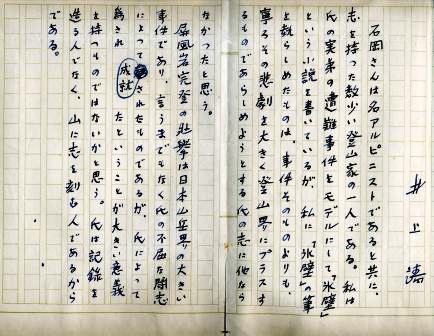 井上靖
石岡さんは名アルピニストであると共に、
志を持った数少い登山家の一人である。私は
氏の実弟の遭難事件をモデルにして「氷壁」
という小説を書いているが、私に「氷壁」の筆
を執らしめたものは、事件そのものよりも、
寧ろその悲劇を大きく登山界にプラスす
るものであらしめようとする氏の志に他なら
なかったと思う。
屏風岩完登の壮挙は日本山岳界の大きい
事件であり、言うまでもなく氏の不屈な闘志
によってされたものであるが、氏によって
為され成就たということが大きい意義
を持つものではないかと思う。氏は記録を
造る人でなく、山に志を刻む人であるから
である。